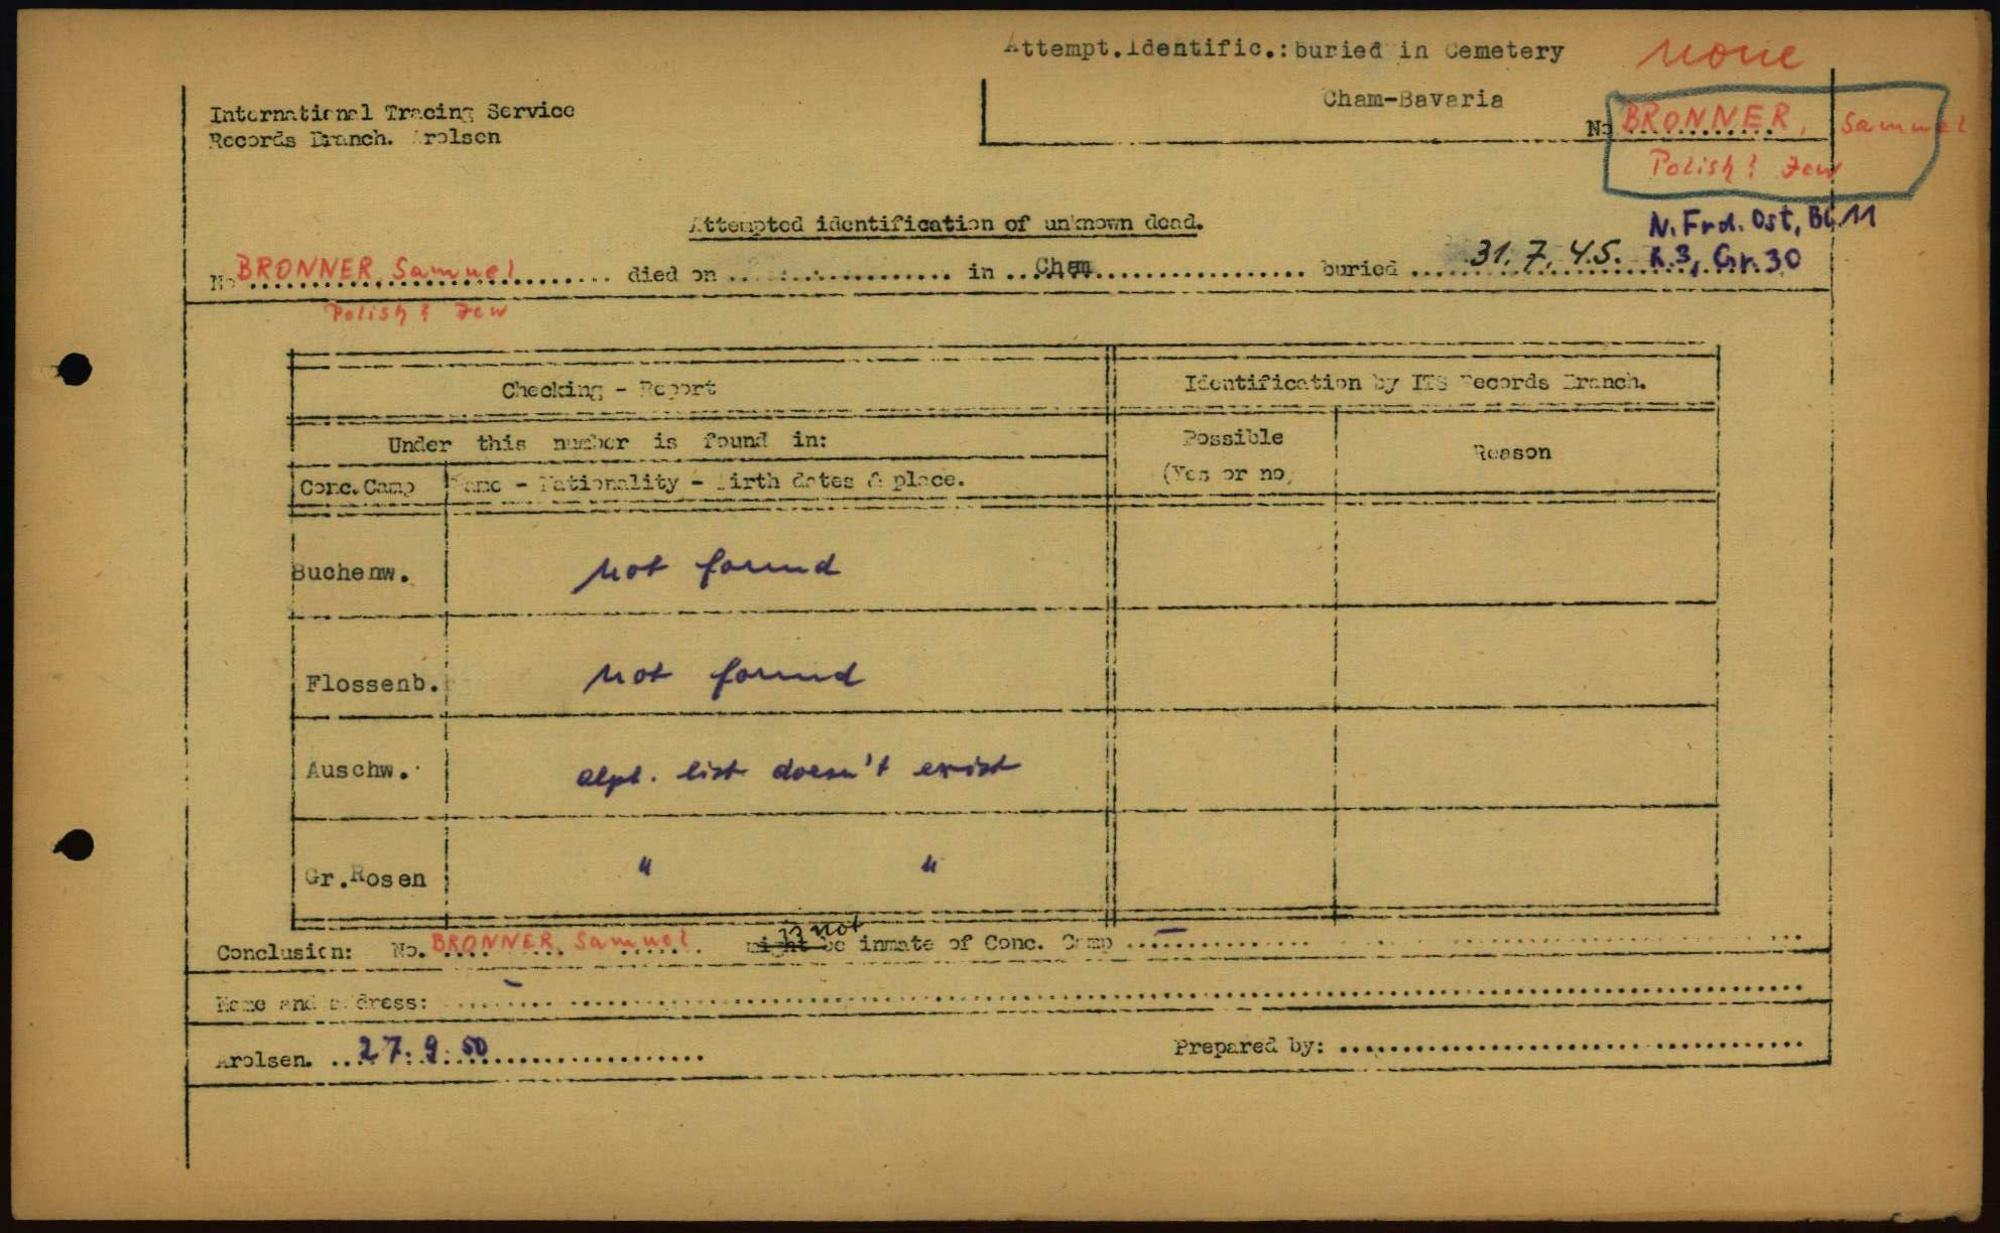 Attempt.Identific.: buried in Cemetery none
Cham-Bavaria
International Tracing Service
Records Branch. Arolsen
No BRONNER, Samuel
Polish? Jew
Attempted identification of unknown dead.
N. Frd. Ost, Bl. 11
R.3, Gr. 30
No BRONNER, Samuel died on in Cham buried 31.7.45.
Polish? Jew
Checking - Report Identification by ITS Records Branch.
Under this number is found in: Possible (Yes or no) Reason
Conc.Camp Name - Nationality - Birth dates & place.
Buchenw. not found
Flossenb. not found
Auschw. alph. list doesn't exist
Gr.Rosen " "
Conclusion: No. BRONNER, Samuel might be not inmate of Conc. Camp –
Name and address: –
Arolsen. 27.9.50 Prepared by: